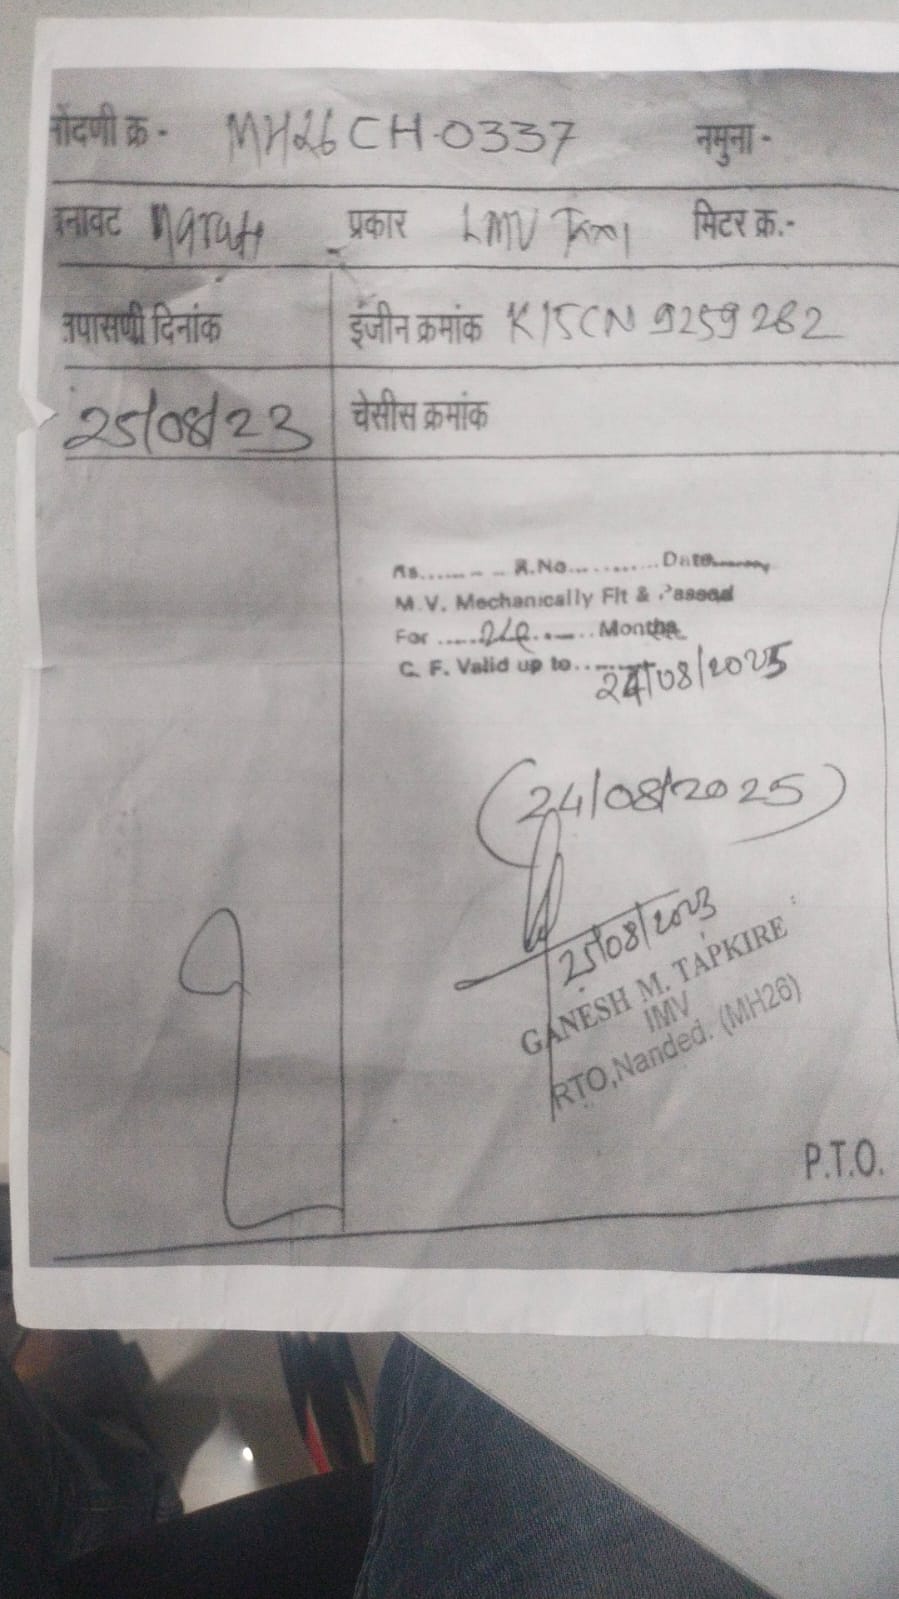 नोंदणी क्र - MH26 CH-0337 नमुना -
बनावट Maruti प्रकार LMV Taxi मिटर क्र.-
तपासणी दिनांक इंजीन क्रमांक K15CN 9259282
25/08/23 चेसीस क्रमांक
Rs. ........ R.No. ......... Date........
M.V. Mechanically Fit & Passed
For ........ Months
C. F. Valid up to........ 24/08/2025
(24/08/2025)
25/08/2023
GANESH M. TAPKIRE
IMV
RTO,Nanded. (MH26)
P.T.O.